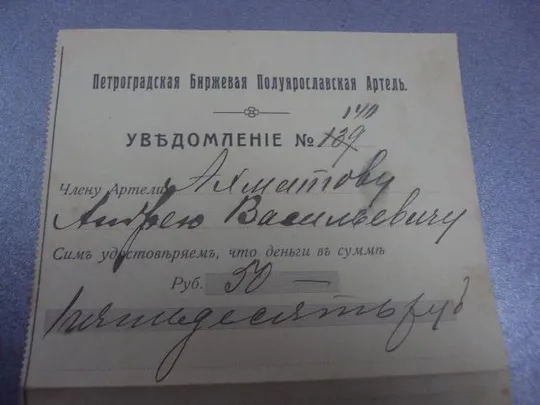 Петроградская Биржевая Полуярославская Артель.
140
УВѢДОМЛЕНІЕ № 139
Члену Артели Ахматову
Андрею Васильевичу
Симъ удостовѣряемъ, что деньги въ суммѣ
Руб. 50 —
пятьдесять руб